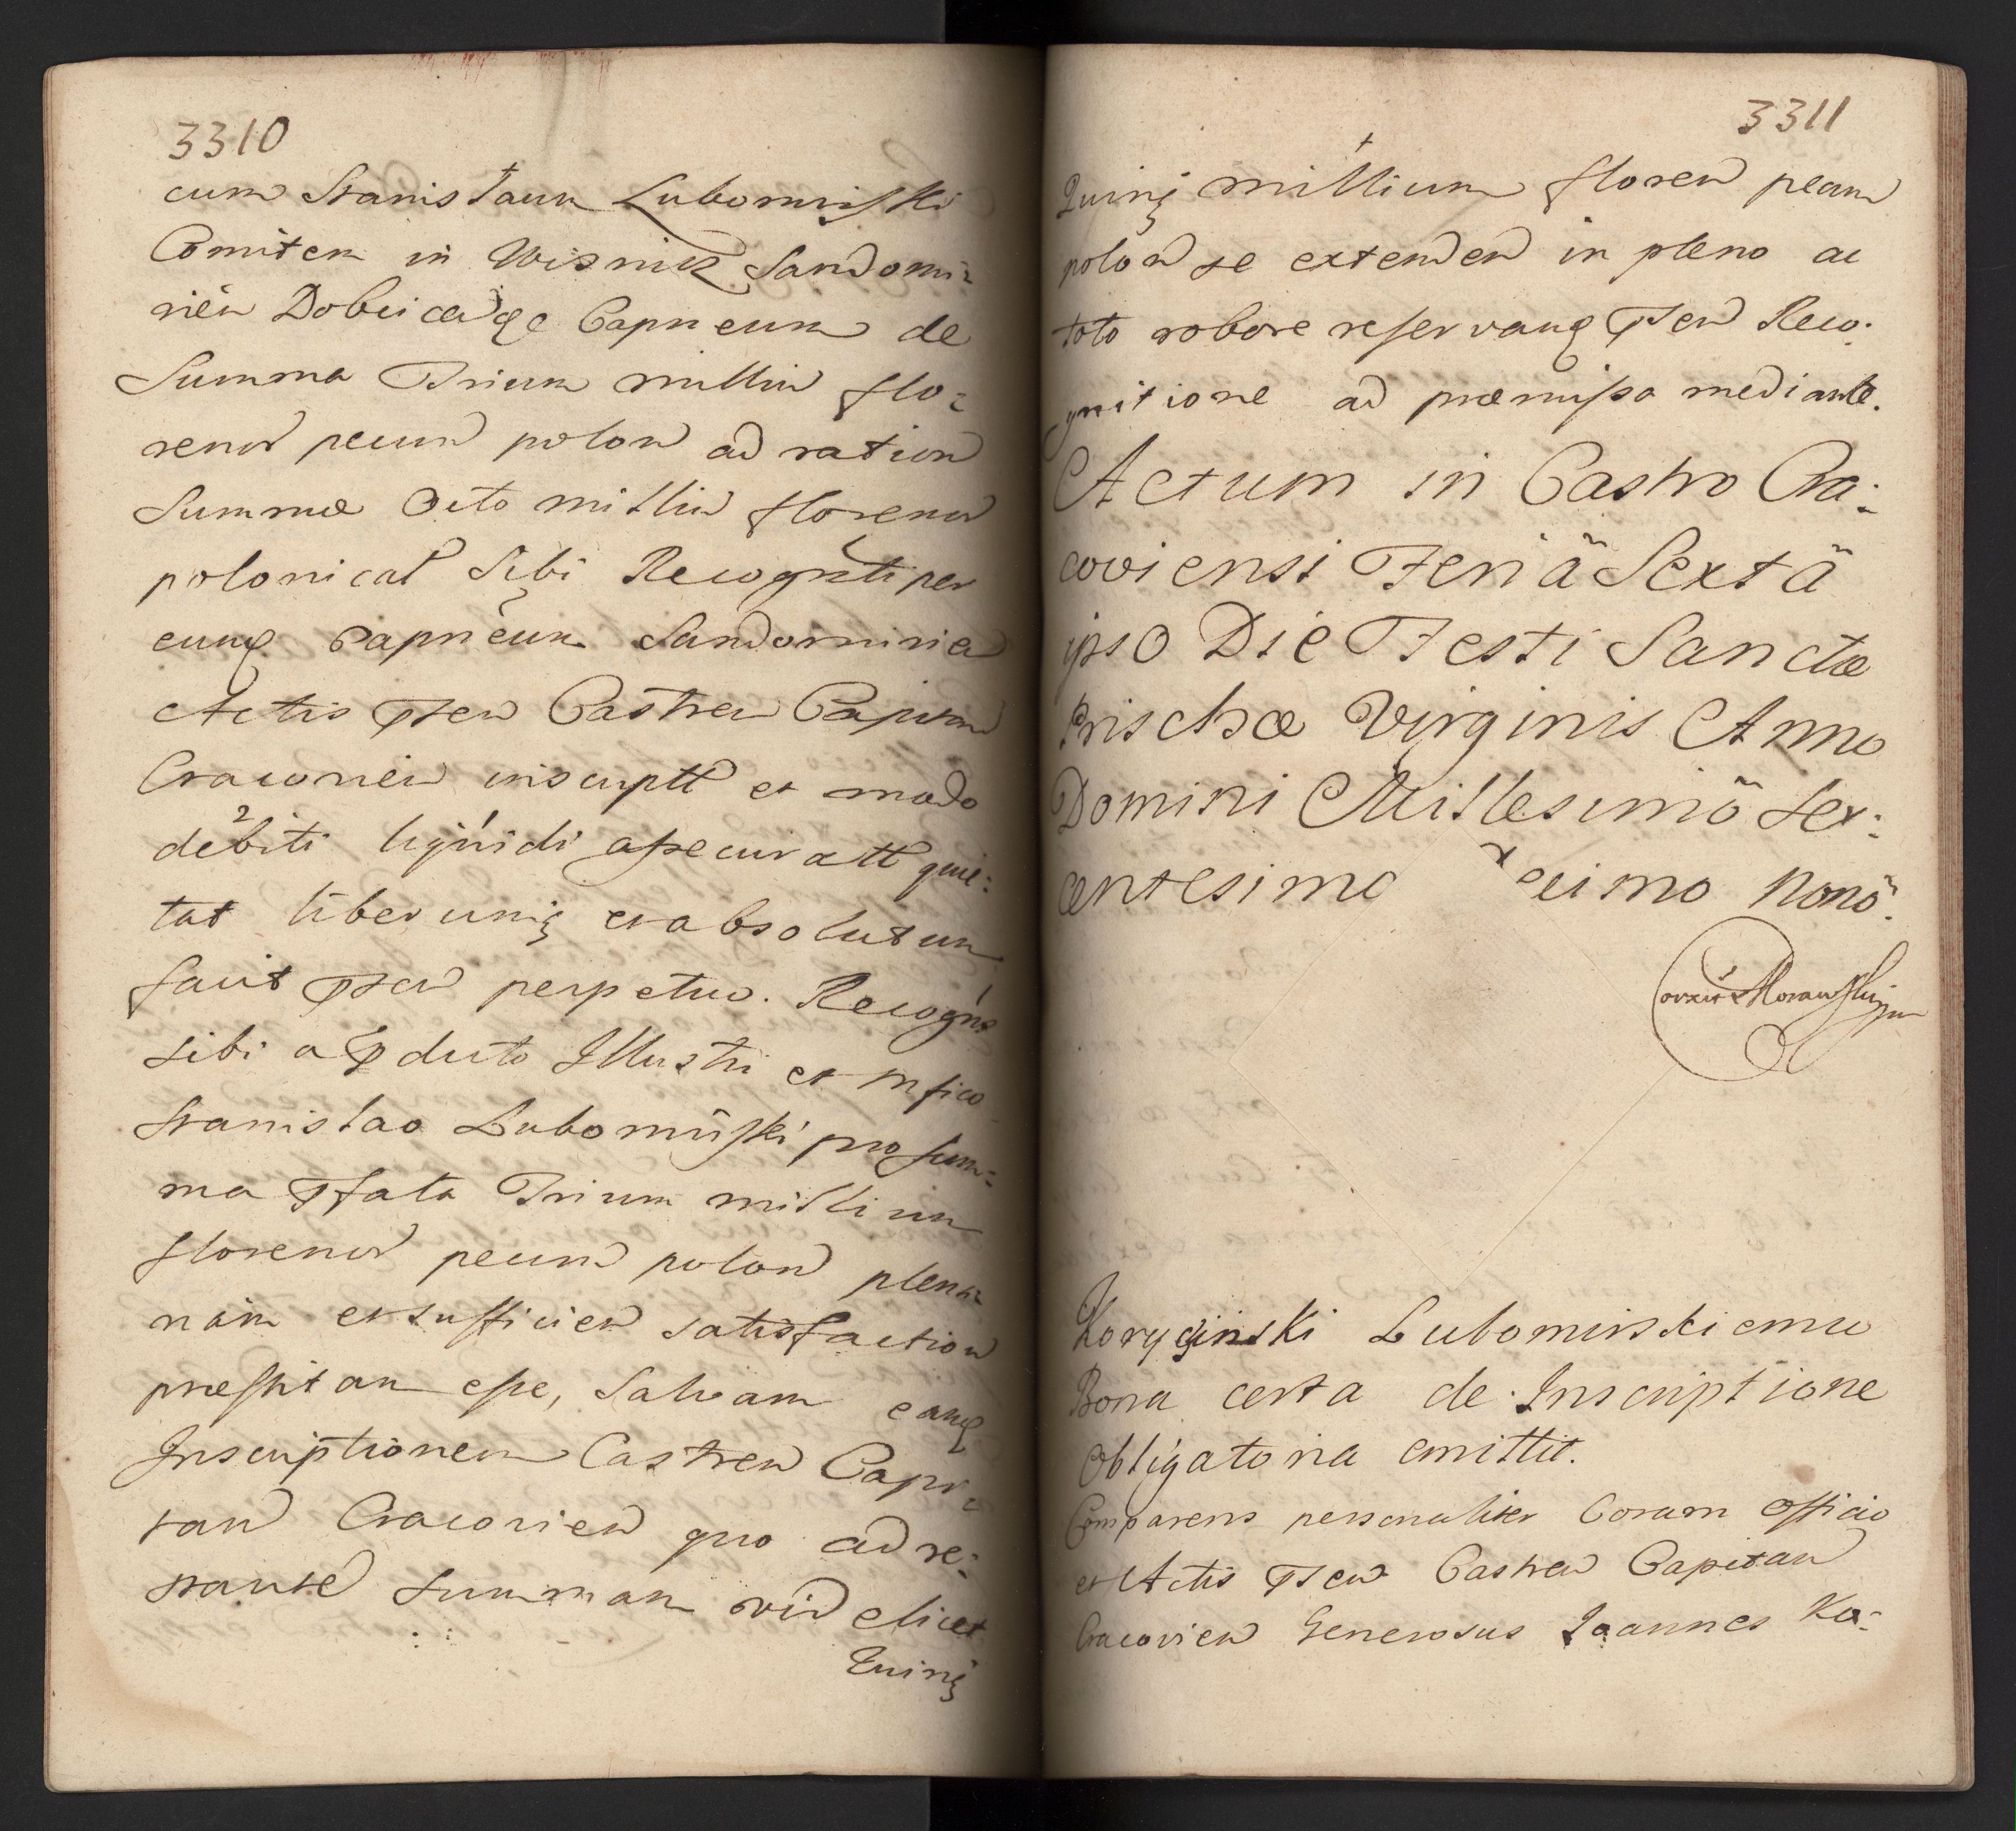 3310
cum Stanislaum Lubomirski
Comitem in Wisnicz Sandomi=
rien Dobcicen qe Capneum de
Summa Trium milliu flo=
renor pecun polon ad ration
Summæ Octo milliu florenor
polonical Sibi Recognti per
eunq Capneum Sandomirien
Actis psen Castren Capitan
Cracovien inscriptt et modo
debiti liquidi assecuratt quie=
tat liberumq et absolutum
facit psen perpetuo. Recogns
sibi a pducto Illustri et Mfico
Stanislao Lubomirski pro sum=
ma pfata Trium millium
florenor pecun polon plena=
riam et sufficien satisfaction
præstitam esse, Salvam eamq
Inscriptionem Castren Capi=
tan Cracovien quo ad re=
stantem Summam videlicet
Quinq
3311
Quinq millium floren pecun
polon se extenden in pleno ac
toto robore reservanq psen Reco=
gnitione ad præmissa mediante.
Actum in Castro Cra=
coviensi Feriâ Sextâ
ipso Die Festi Sanctæ
Prischæ Virginis Anno
Domini Millesimô Sex=
centesimo ecimo Nonô.
Korycinski Lubomirskiemu
Bona certa de Inscriptione
Obligatoria emittit.
Comparens personaliter Coram officio
et Actis psen Castren Capitan
Cracovien Generosus Joannes Ko=